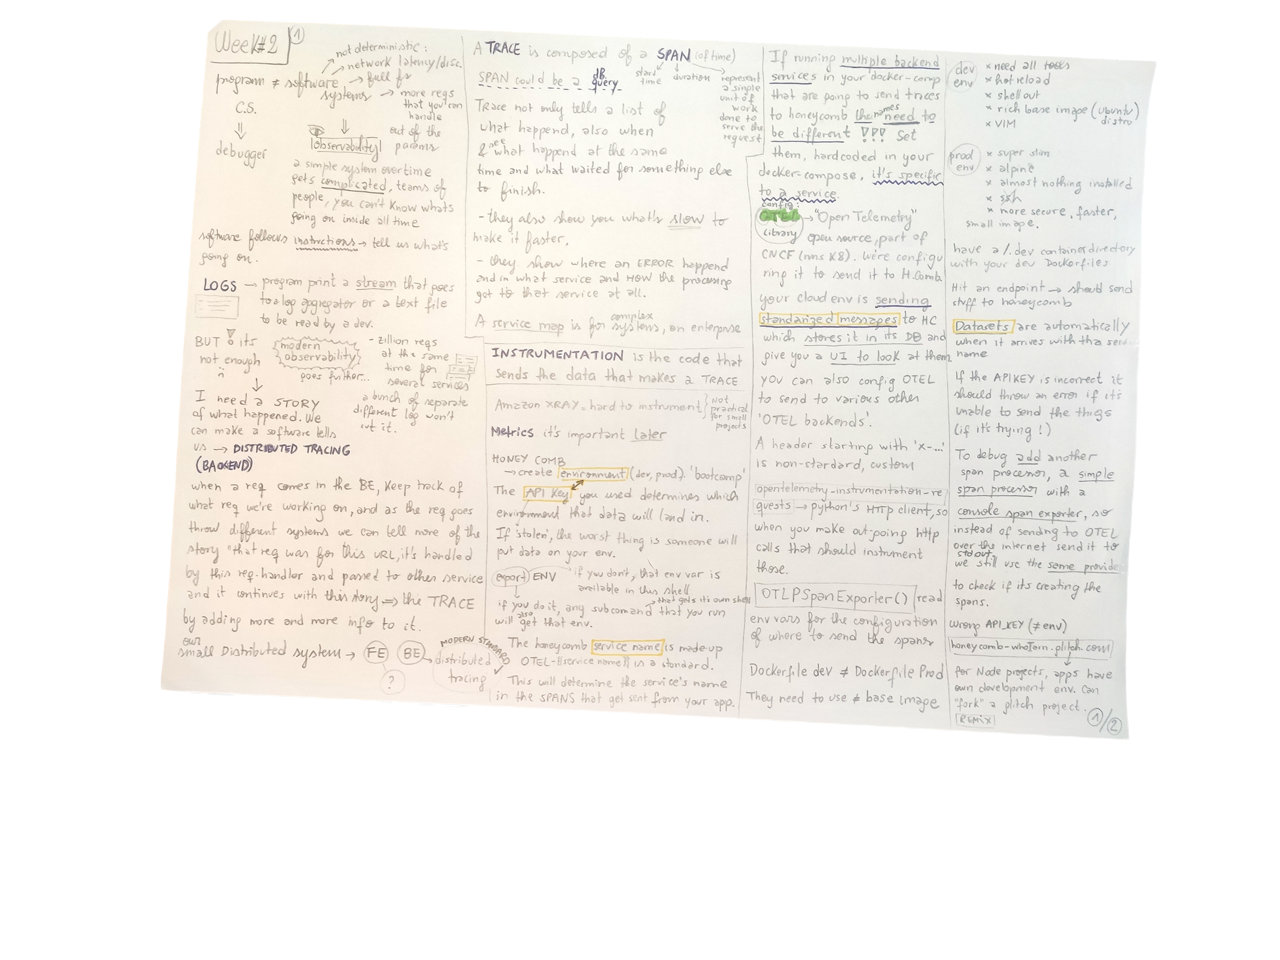 Week#2 ①
not deterministic:
network latency/disc
program ≠ software systems → full fs
→ more reqs that you can handle
C.S.
debugger
observability
out of the params
a simple system overtime
gets complicated, teams of
people, you can't know whats
going on inside all time
software follows instructions → tell us what's
going on.
LOGS → program print a stream that goes
to a log aggregator or a text file
to be read by a dev.
BUT ! its
not enough
modern
observability
goes further...
- zillion reqs
at the same
time for
several services
a bunch of separate
different log won't
cut it.
I need a STORY
of what happened. We
can make a software tells
us → DISTRIBUTED TRACING
(BACKEND)
when a req comes in the BE, keep track of
what req we're working on, and as the req goes
throw different systems we can tell more of the
story "that req was for this URL, it's handled
by this req-handler and passed to other service
and it continues with this story ⇒ the TRACE
by adding more and more info to it.
our
small Distributed system → FE BE
?
MODERN STANDARD
distributed
tracing
A TRACE is composed of a SPAN (of time)
SPAN could be a db query
start time
duration
represent
a single
unit of
work
done to
serve the
request
Trace not only tells a list of
what happend, also when
& what happend at the same
time and what waited for something else
to finish.
- they also show you what's slow to
make it faster.
- they show where an ERROR happend
and in what service and HOW the processing
got to that service at all.
A service map is for complex systems, an enterprise
INSTRUMENTATION is the code that
sends the data that makes a TRACE
Amazon XRAY = hard to instrument
not
practical
for small
projects
Metrics it's important later
HONEY COMB
→ create environment (dev, prod). 'bootcamp'
The API key you used determines which
environment that data will land in.
If 'stolen', the worst thing is someone will
put data on your env.
export ENV
if you don't, that env var is
available in this shell
if you do it, any subcomand that you run
that gets its own shell
will also get that env.
The honeycomb service name is made up
OTEL-[service name] is a standard.
This will determine the service's name
in the SPANS that get sent from your app.
If running multiple backend
services in your docker-comp
that are going to send traces
to honeycomb the names need to
be different !!! Set
them, hardcoded in your
docker-compose, it's specific
to a service.
config:
OTEL → "Open Telemetry"
Library
open source, part of
CNCF (runs K8). We're configu
ring it to send it to H.Comb.
your cloud env is sending
standarized messages to HC
which stores it in its DB and
give you a UI to look at them
you can also config OTEL
to send to various other
'OTEL backends'.
A header starting with 'x-...'
is non-standard, custom
opentelemetry-instrumentation-re
quests → python's HTTP client, so
when you make out-going http
calls that should instrument
those.
OTLPSpanExporter() read
env vars for the configuration
of where to send the spans
Dockerfile dev ≠ Dockerfile Prod
They need to use ≠ base image
dev
env
× need all tools
× hot reload
× shell out
× rich base image (ubuntu distro)
× VIM
prod
env
× super slim
× alpine
× almost nothing installed
× ssh
× more secure, faster,
small image.
have a /.dev container directory
with your dev Dockerfiles
Hit an endpoint → should send
stuff to honeycomb
Datasets are automatically
when it arrives with that
name
If the APIKEY is incorrect it
should throw an error if it's
unable to send the things
(if it's trying!)
To debug add another
span processor, a simple
span processor with a
console span exporter, so
instead of sending to OTEL
over the internet send it to
stdout
we still use the same provide
to check if its creating the
spans.
Wrong API_KEY (≠ env)
honeycomb-whoami.glitch.com
For Node projects, apps have
own development env. Can
"fork" a glitch project.
REMIX
①/②